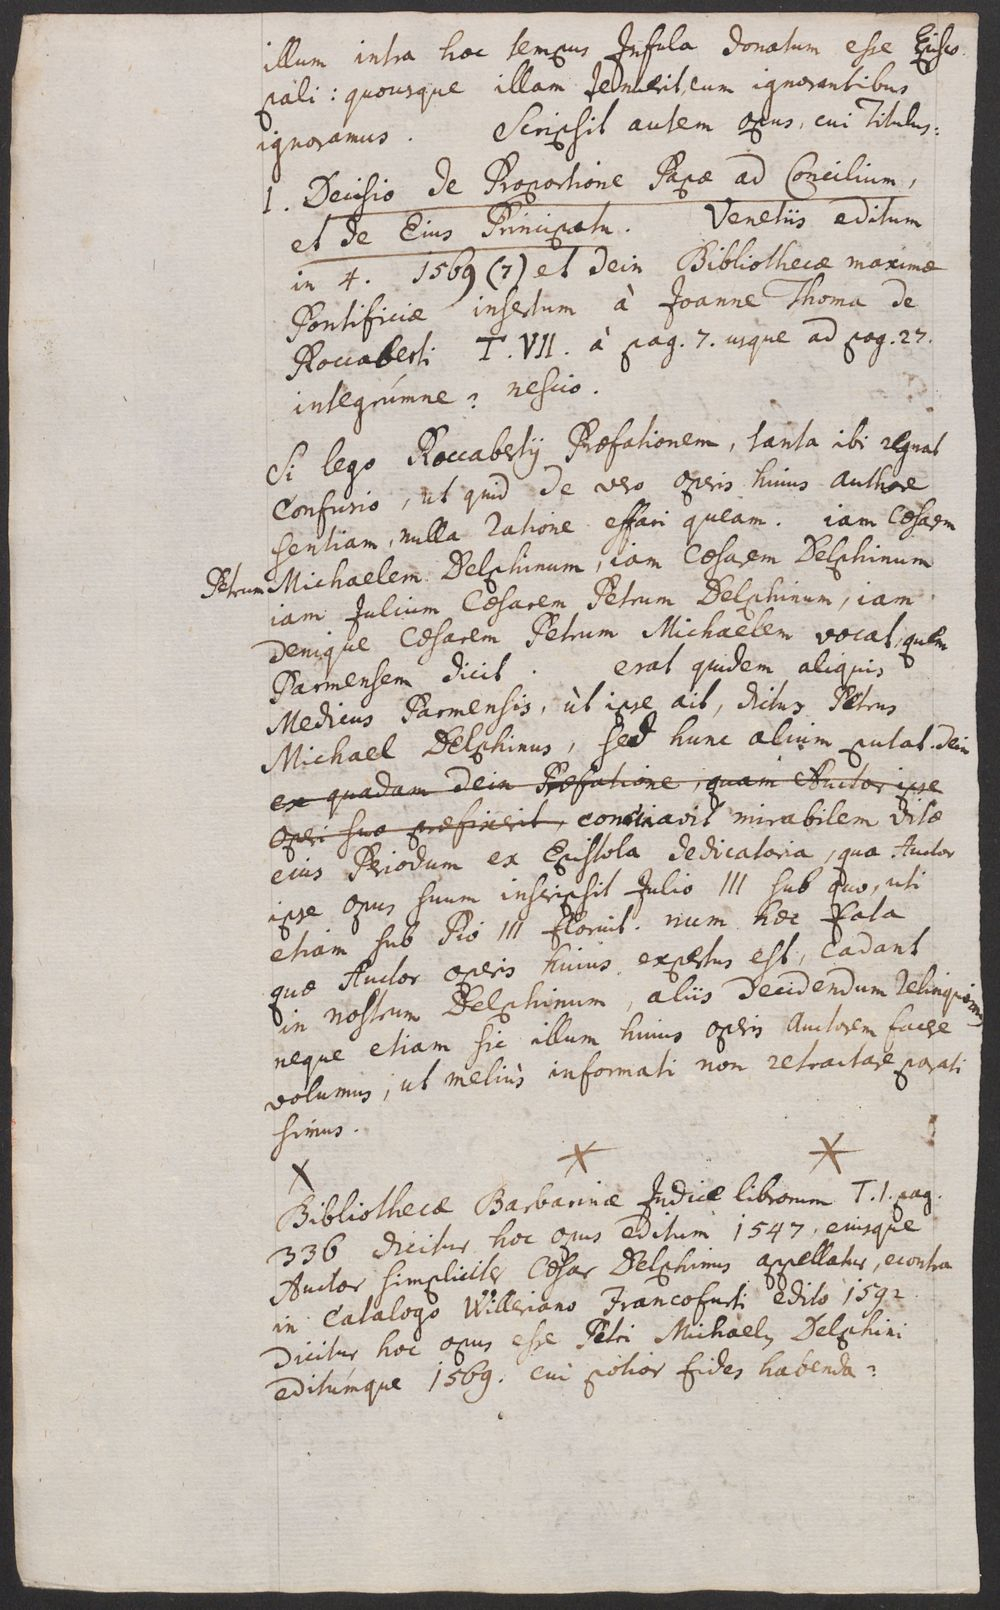 illum intra hoc tempus Infula donatum esse Episco
pali : quousque illam tenuerit, cum ignorantibus
ignoramus . Scripsit autem opus, cui Titulus:
1. Decisio de Proportione Papæ ad Concilium,
et de Eius Principatu. Venetiis editum
in 4. 1569 (7) et dein Bibliothecæ maximæ
Pontificiæ insertum à Joanne Thoma de
Roccaberti T. VII. à pag. 7. usque ad pag. 27.
integrúmne? nescio.
Si lego Roccabertij Præfationem, tanta ibi regnat
Confusio, ut quid de vero operis huius authore
sentiam, nulla ratione effari queam. iam Cæsarem
Petrum Michaelem Delphinum, iam Cæsarem Delphinum
iam Julium Cæsarem Petrum Delphinum, iam
denique Cæsarem Petrum Michaelem vocat, quem
Parmensem dicit . erat quidem aliquis
Medicus Parmensis, ùt ipse ait, dictus Petrus
Michael Delphinus, sed hunc alium putat. dein
ex quadam dein Præfatione, quam Auctor ipse
operi suo præfixerit, concinavit mirabilem vitæ
eius Periodum ex Epistola dedicatoria, qua Auctor
ipse opus suum inscripsit Julio III sub quo, uti
etiam sub Pio III floruit. num hæc fata
quæ Auctor operis huius expertus est, cadant
in nostrum Delphinum, aliis decidendum relinquimus
neque etiam sic illum huius operis Auctorem facere
volumus, ut meliùs informati non retractare parati
simus.
Bibliothecæ Barbarinæ Indice librorum T. I. pag.
336 dicitur hoc opus editum 1547. eiusque
Auctor simpliciter Cæsar Delphinus appellatur, econtra
in Catalogo Willeriano Francofurti edito 1592
dicitur hoc opus esse Petri Michaelis Delphini
editúmque 1569. cui potior fides habenda?